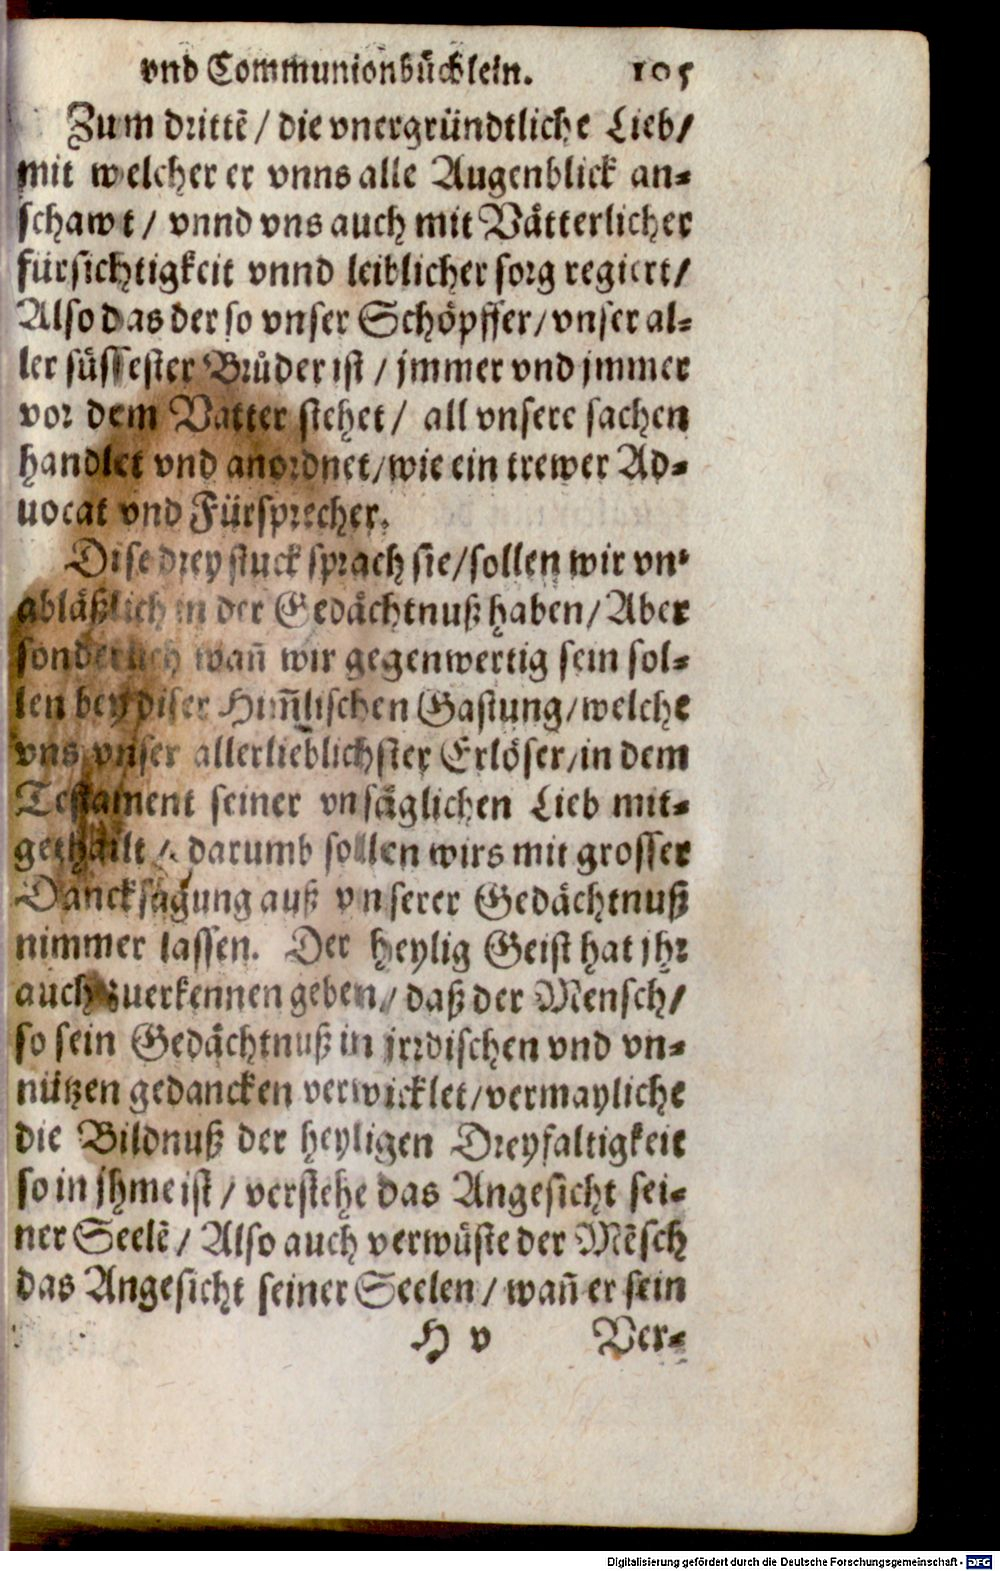 vnd Communionbüchlein. 105
Zum drittẽ / die vnergründtliche Lieb/
mit welcher er vnns alle Augenblick an-
schawt / vnnd vns auch mit Vätterlicher
fürsichtigkeit vnnd leiblicher sorg regiert/
Also das der so vnser Schöpffer/vnser al-
ler süssester Brůder ist / jmmer vnd jmmer
vor dem Vatter stehet / all vnsere sachen
handlet vnd anordnet/wie ein trewer Ad-
uocat vnd Fürsprecher.
Dise drey stuck sprach sie/sollen wir vn-
abläßlich in der Gedächtnuß haben/Aber
sonderlich wañ wir gegenwertig sein sol-
len bey diser Him̃lischen Gastung/welche
vns vnser allerlieblichster Erlöser/in dem
Testament seiner vnsäglichen Lieb mit-
gethailt / darumb sollen wirs mit grosser
Dancksagung auß vnserer Gedächtnuß
nimmer lassen. Der heylig Geist hat jhr
auch zuerkennen geben / daß der Mensch/
so sein Gedächtnuß in jrrdischen vnd vn-
nützen gedancken verwicklet/vermayliche
die Bildnuß der heyligen Dreyfaltigkeit
so in jhme ist / verstehe das Angesicht sei-
ner Seelẽ / Also auch verwüste der Mẽsch
das Angesicht seiner Seelen / wañ er sein
H v Ver-
Digitalisierung gefördert durch die Deutsche Forschungsgemeinschaft - DFG